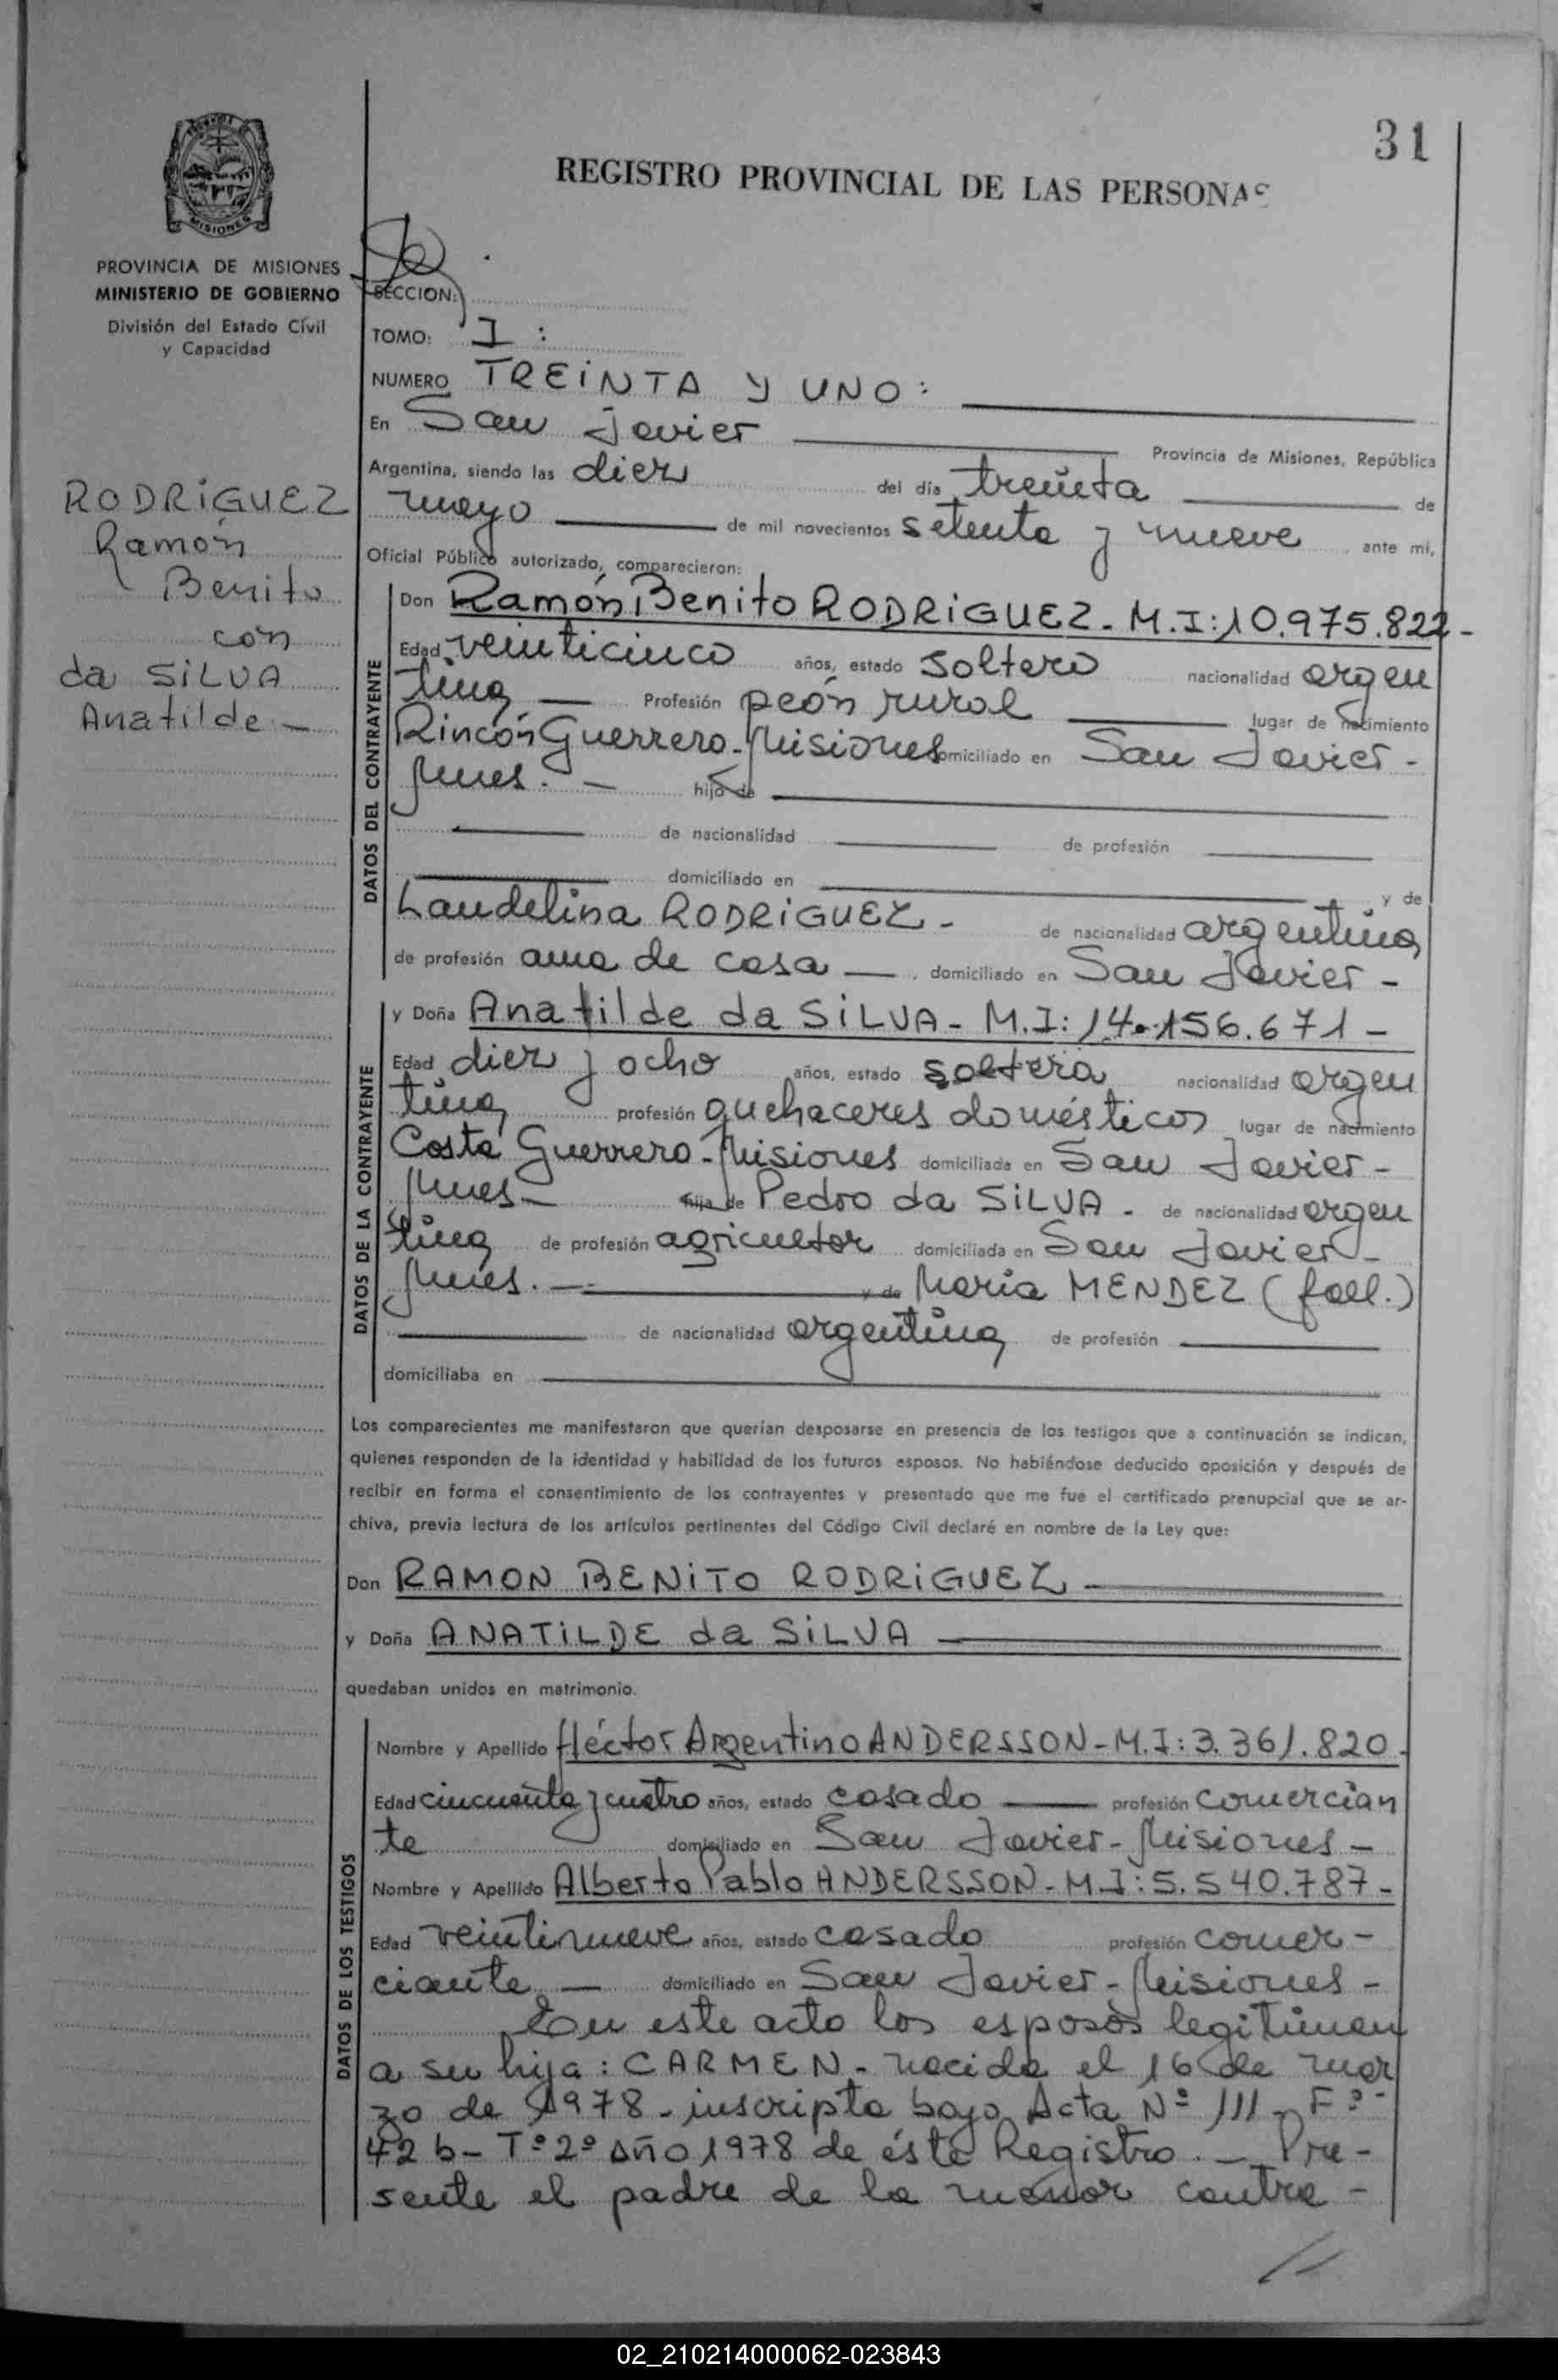 31
REGISTRO PROVINCIAL DE LAS PERSONAS
MISIONES
PROVINCIA DE MISIONES
MINISTERIO DE GOBIERNO
División del Estado Civil
y Capacidad
SECCION:
TOMO: I :
NUMERO TREINTA Y UNO:
En San Javier Provincia de Misiones, República
Argentina, siendo las diez del día treinta de
mayo de mil novecientos setenta y nueve, ante mi,
Oficial Público autorizado, comparecieron:
RODRIGUEZ
Ramón
Benito
con
da SILVA
Anatilde.-
DATOS DEL CONTRAYENTE
Don Ramón Benito RODRIGUEZ - M.I: 10.975.822-
Edad veinticinco años, estado soltero nacionalidad argen
tina — Profesión peón rural lugar de nacimiento
Rincón Guerrero - Misiones domiciliado en San Javier -
Mnes. — hijo de
de nacionalidad de profesión
domiciliado en y de
Laudelina RODRIGUEZ - de nacionalidad argentina
de profesión ama de casa —, domiciliado en San Javier -
DATOS DE LA CONTRAYENTE
y Doña Anatilde da SILVA - M.I: 14.156.671 -
Edad diez y ocho años, estado soltera nacionalidad argen
tina profesión quehaceres domésticos lugar de nacimiento
Costa Guerrero - Misiones domiciliada en San Javier -
Mnes - hija de Pedro da SILVA - de nacionalidad argen
tina de profesión agricultor domiciliada en San Javier -
Mnes. — y de María MENDEZ (fall.)
de nacionalidad argentina de profesión
domiciliaba en
Los comparecientes me manifestaron que querían desposarse en presencia de los testigos que a continuación se indican,
quienes responden de la identidad y habilidad de los futuros esposos. No habiéndose deducido oposición y después de
recibir en forma el consentimiento de los contrayentes y presentado que me fue el certificado prenupcial que se ar-
chiva, previa lectura de los artículos pertinentes del Código Civil declaré en nombre de la Ley que:
Don RAMON BENITO RODRIGUEZ
y Doña ANATILDE da SILVA
quedaban unidos en matrimonio.
DATOS DE LOS TESTIGOS
Nombre y Apellido Héctor Argentino ANDERSSON - M.I: 3.361.820.
Edad cincuenta y cuatro años, estado casado — profesión comercian
te domiciliado en San Javier - Misiones -
Nombre y Apellido Alberto Pablo ANDERSSON - M.I: 5.540.787 -
Edad veintinueve años, estado casado profesión comer-
ciante — domiciliado en San Javier - Misiones -
En este acto los esposos legitiman
a su hija: CARMEN - nacida el 16 de mar
zo de 1978 - inscripta bajo Acta Nº 111 - Fº-
42 b - Tº 2º Año 1978 de éste Registro. — Pre-
sente el padre de la menor contra -
02_210214000062-023843